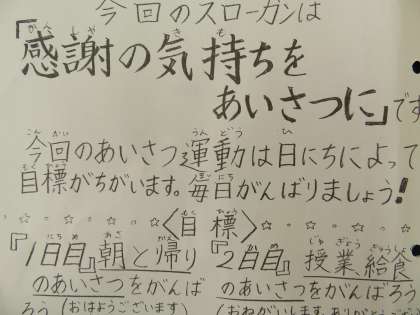 今回のスローガンは
『感謝の気持ちを
あいさつに』です
今回のあいさつ運動は日にちによって
目標がちがいます。毎日がんばりましょう!
〈目標〉
『1日目』朝と帰り
のあいさつをがんば
ろう(おはようございます)
『2日目』授業給食
のあいさつをがんばろう
(おねがいします。ありがとう